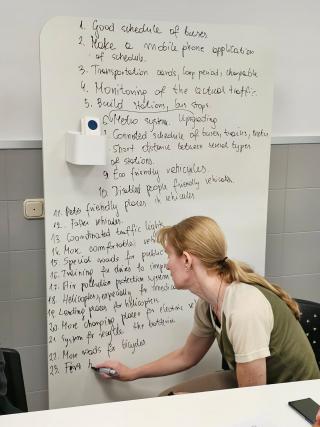 1. Good schedule of buses.
2. Make a mobile phone application
of schedule.
3. Transportation cards, long period, changeable
4. Monitoring of the actual traffic.
5. Build stations, bus stops.
6. Metro system. Upgrading
7. Connected schedule of buses, trucks, metro
8. Short distance between several types
of stations.
9. Eco friendly vehicles.
10. Disabled people friendly vehicles.
11. friendly places in vehicles
12. vehicles.
13. Coordinated traffic lights
14. More comfortable
15. Special roads for public
16. Training for to
17. Air pollution system
18. Helicopters, especially for
19. Landing places for helicopters
20. More changing places for electric
21. System for the
22. More roads for bicycles
23.